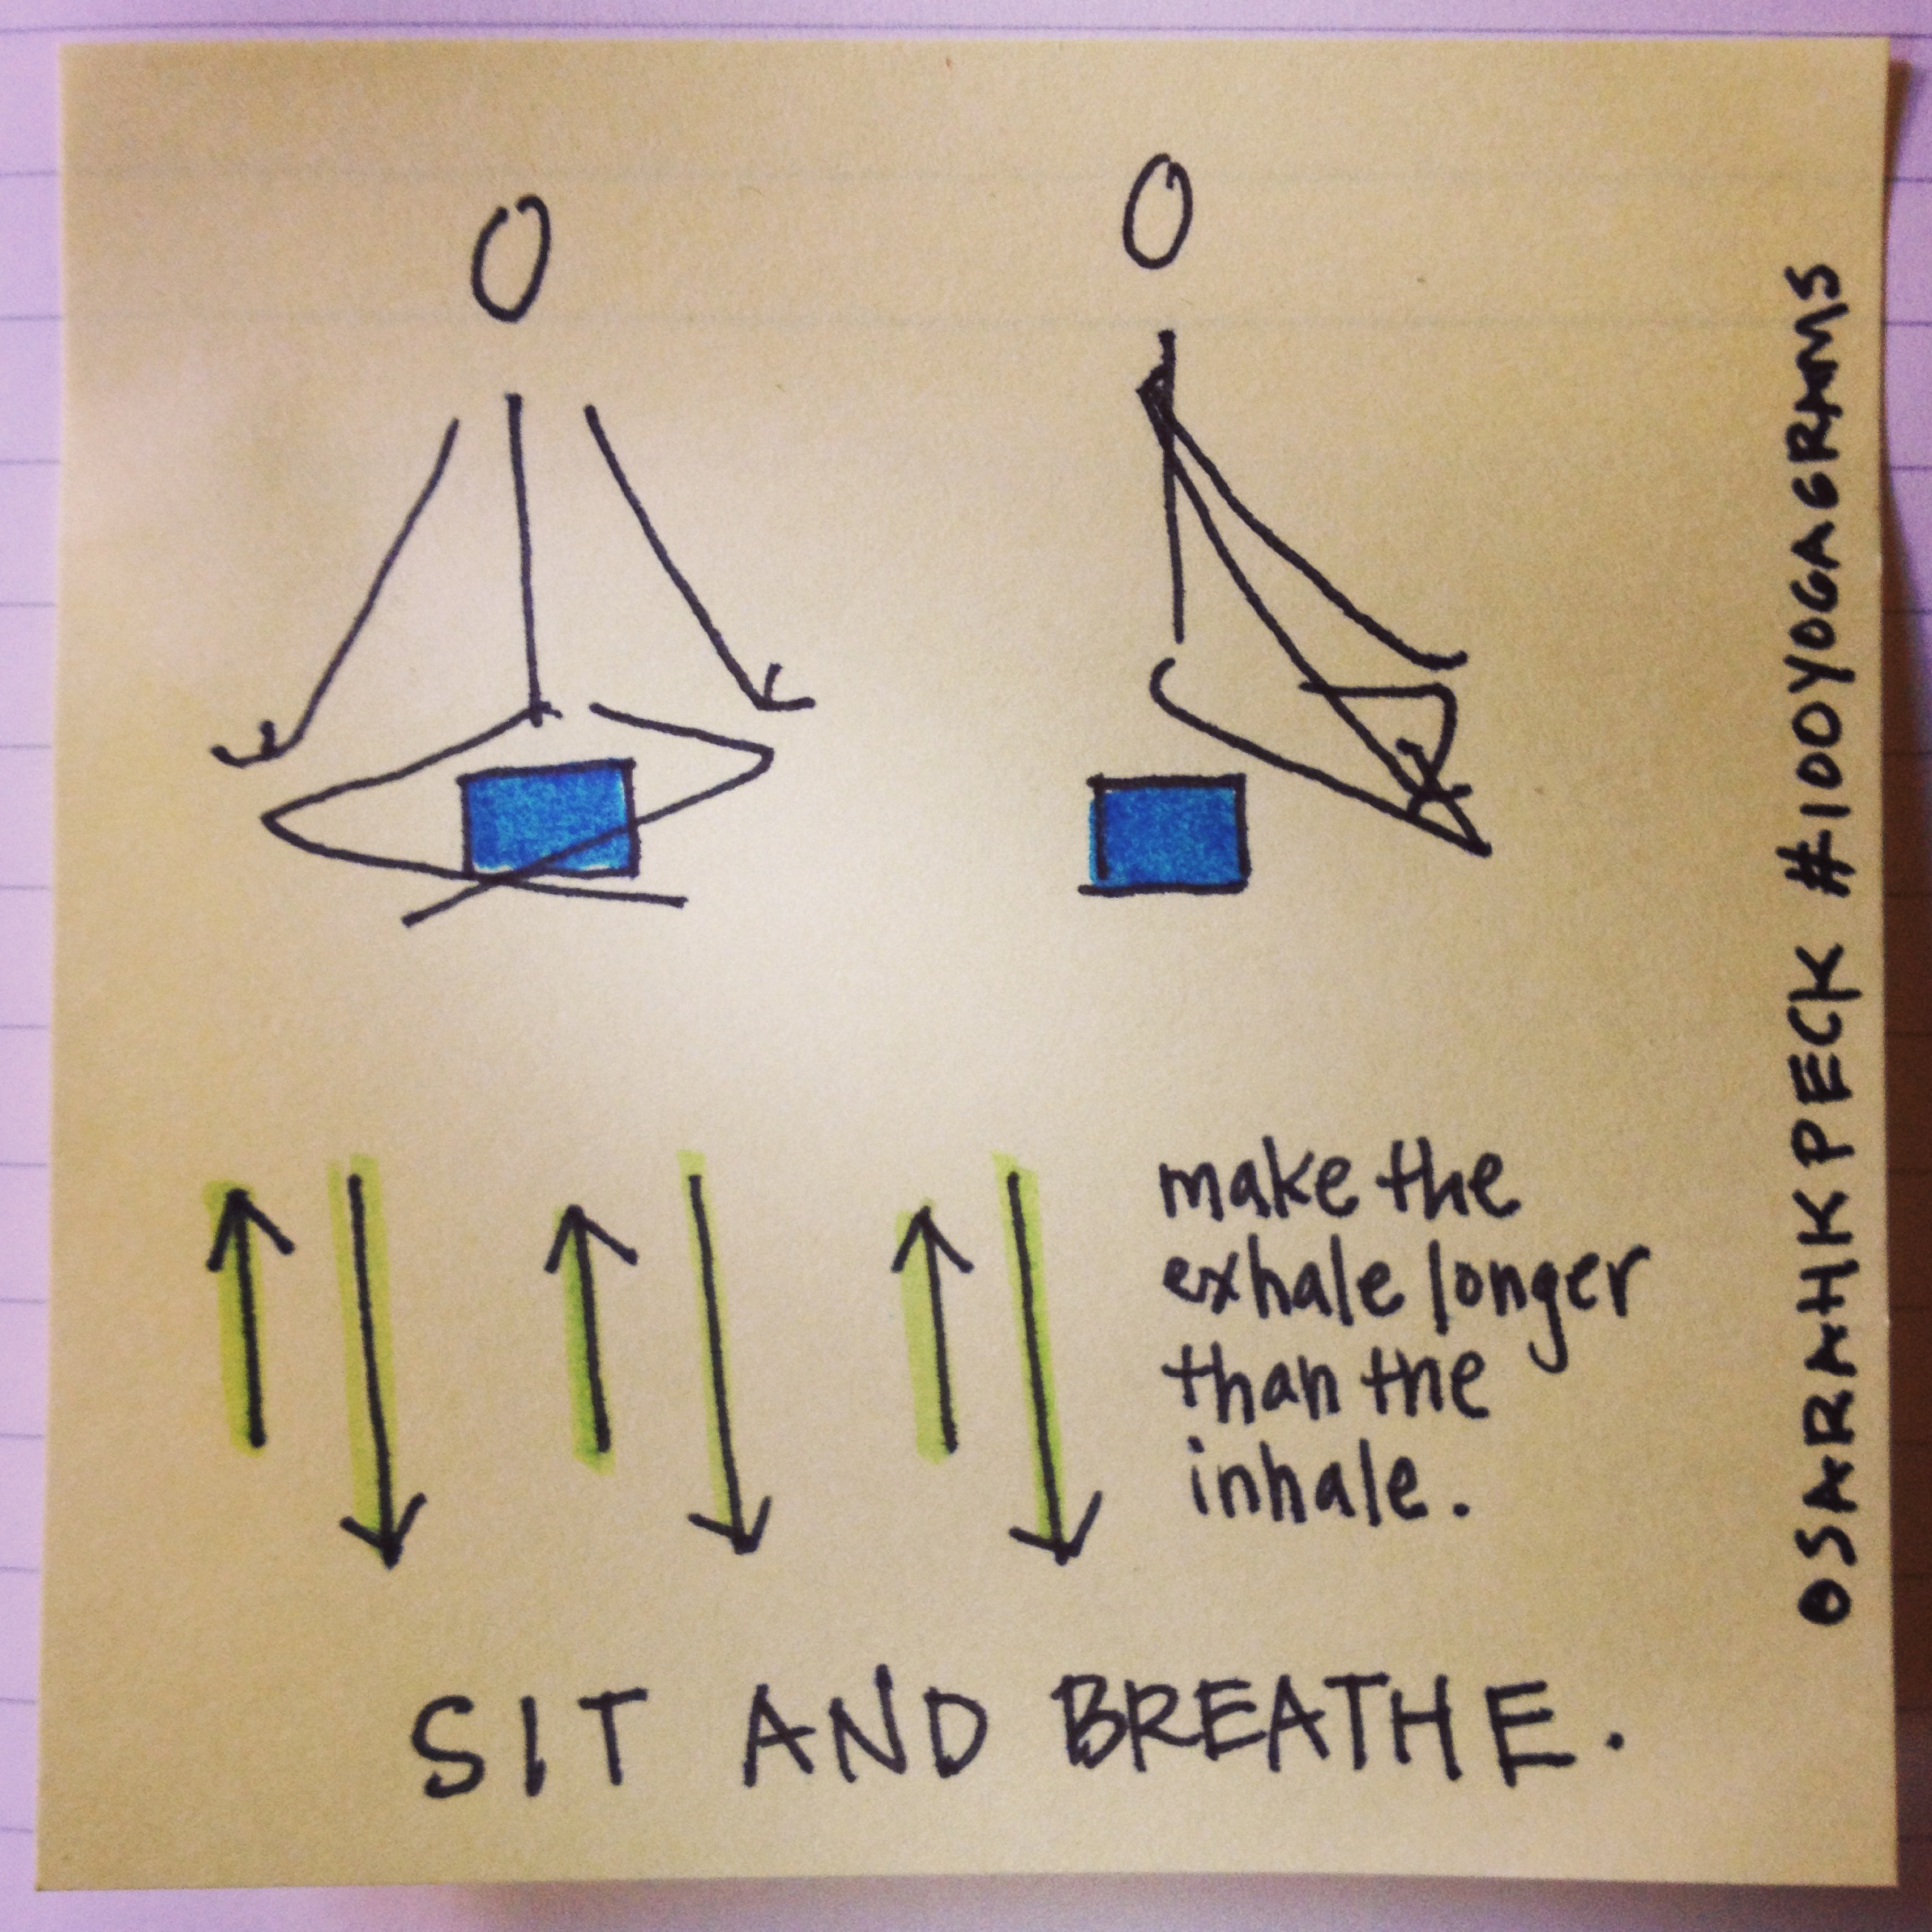 make the
exhale longer
than the
inhale.
SIT AND BREATHE.
@SARAHKPECK #100YOGAGRAMS